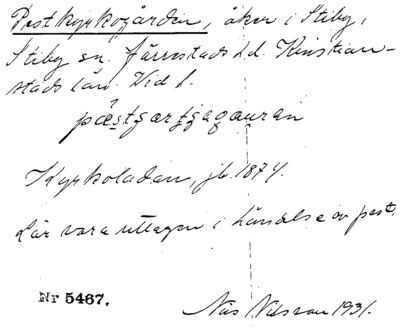 Pestkyrkogården, åker i Stiby,
Stiby sn. Järrestads hd. Kristian-
stads län. Vid f.
Kyrkoladan, jb. 1874.
Lär vara uttagen i händelse av pest.
Nr 5467. Nils Nilsson 1931.